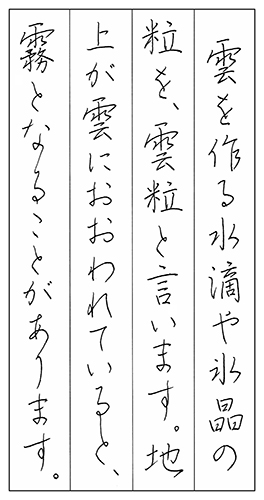 雲を作る水滴や氷晶の
粒を、雲粒と言います。地
上が雲におおわれていると、
霧となることがあります。